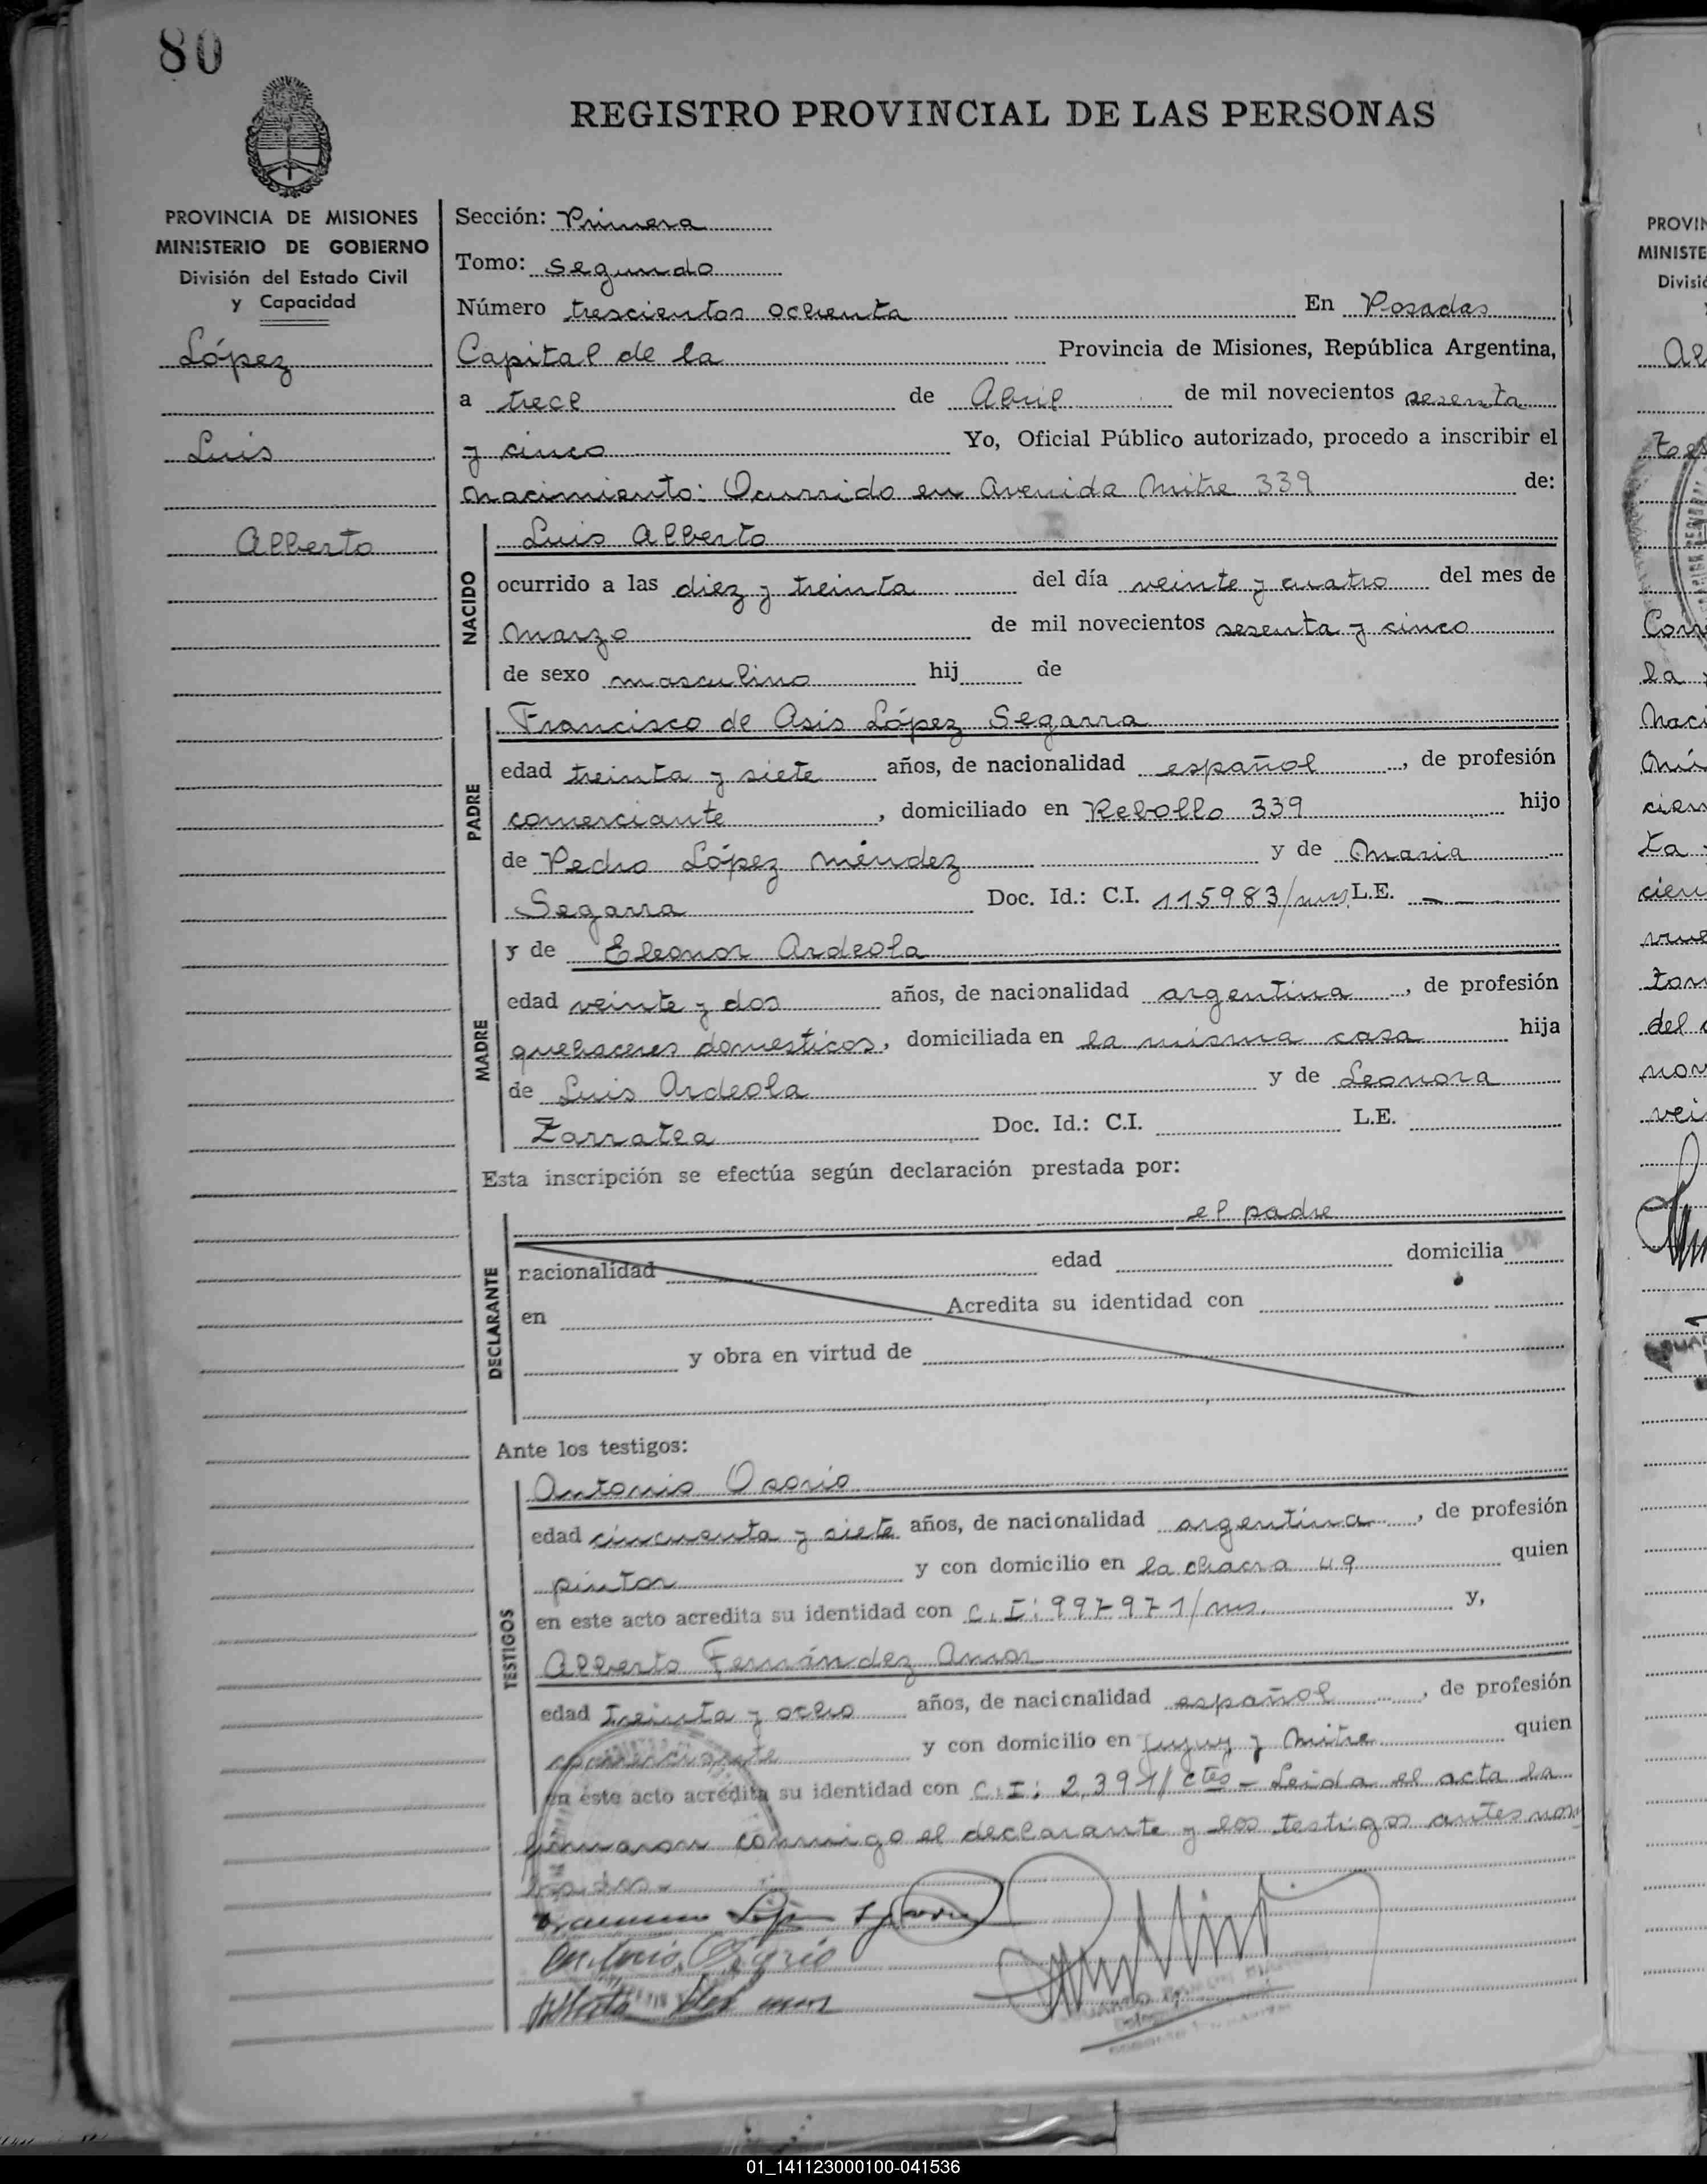 80
REGISTRO PROVINCIAL DE LAS PERSONAS
PROVINCIA DE MISIONES
MINISTERIO DE GOBIERNO
División del Estado Civil
y Capacidad
López
Luis
Alberto
Sección: Primera
Tomo: Segundo
Número trescientos ochenta En Posadas
Capital de la Provincia de Misiones, República Argentina,
a trece de Abril de mil novecientos sesenta
y cinco Yo, Oficial Público autorizado, procedo a inscribir el
Nacimiento: Ocurrido en Avenida Mitre 339 de:
NACIDO
Luis Alberto
ocurrido a las diez y treinta del día veinte y cuatro del mes de
Marzo de mil novecientos sesenta y cinco
de sexo masculino hij de
PADRE
Francisco de Asis López Segarra
edad treinta y siete años, de nacionalidad español, de profesión
comerciante, domiciliado en Rebollo 339 hijo
de Pedro López Méndez y de Maria
Segarra Doc. Id.: C.I. 115983/mns L.E. —
MADRE
y de Eleonor Ardeola
edad veinte y dos años, de nacionalidad argentina, de profesión
quehaceres domesticos, domiciliada en la misma casa hija
de Luis Ardeola y de Leonora
Zarratea Doc. Id.: C.I. L.E.
Esta inscripción se efectúa según declaración prestada por:
el padre
DECLARANTE
nacionalidad edad domicilia
en Acredita su identidad con
y obra en virtud de
Ante los testigos:
TESTIGOS
Antonio Osorio
edad cincuenta y siete años, de nacionalidad argentina, de profesión
pintor y con domicilio en la chacra 49 quien
en este acto acredita su identidad con C.I: 997971/mns. y,
Alberto Fernández Amor
edad treinta y ocho años, de nacionalidad español, de profesión
comerciante y con domicilio en Jujuy y Mitre quien
en este acto acredita su identidad con C.I: 2.391/ctes - Leida el acta la
firmaron conmigo el declarante y los testigos antes nom
brados-
01_141123000100-041536